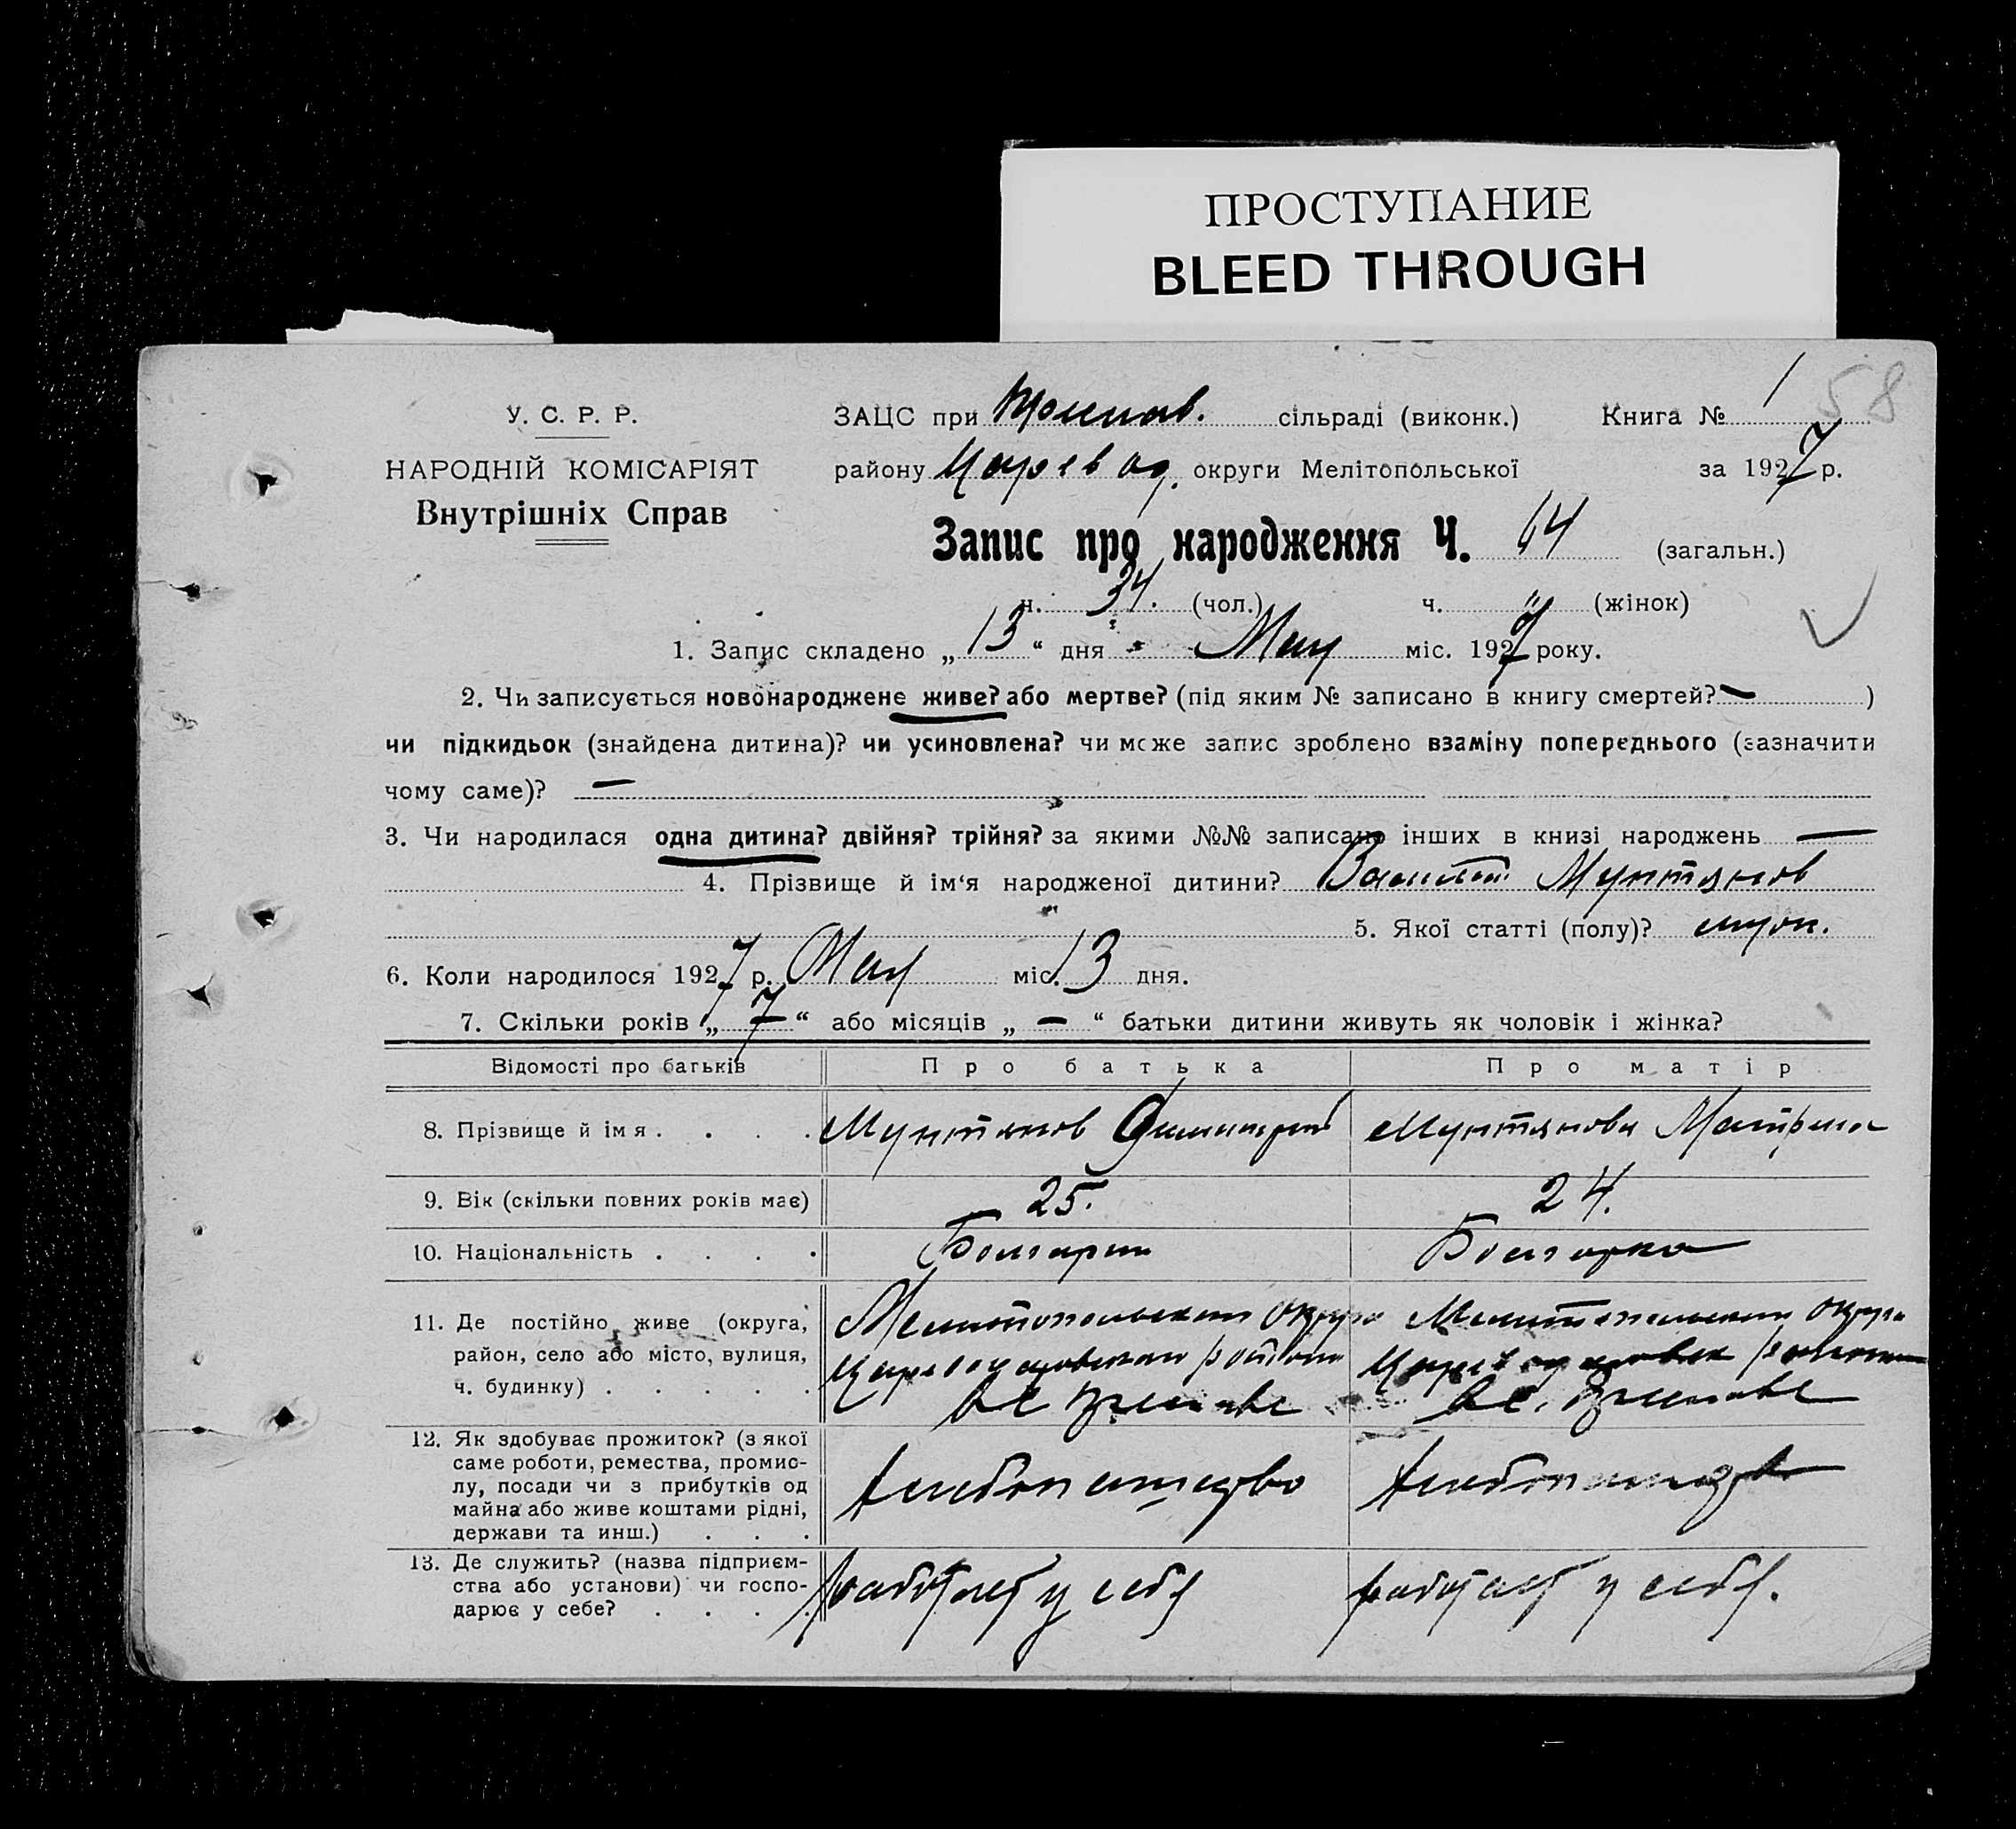 ПРОСТУПАНИЕ
BLEED THROUGH
58
У. С. Р. Р.
НАРОДНІЙ КОМІСАРІЯТ
Внутрішніх Справ
ЗАЦС при сільраді (виконк.) Книга № 1
району Царевод. округи Мелітопольської за 1927 р.
Запис про народження Ч. 64 (загальн.)
ч. 34. (чол.) ч. " (жінок)
1. Запис складено „13“ дня Мая міс. 1927 року.
2. Чи записується новонароджене живе? або мертве? (під яким № записано в книгу смертей? — )
чи підкидьок (знайдена дитина)? чи усиновлена? чи може запис зроблено взаміну попереднього (зазначити
чому саме)? —
3. Чи народилася одна дитина? двійня? трійня? за якими №№ записано інших в книзі народжень —
4. Прізвище й ім‘я народженої дитини? Василий Мунтянов
5. Якої статті (полу)? муж.
6. Коли народилося 1927 р. Мая міс. 13 дня.
7. Скільки років „7“ або місяців „—“ батьки дитини живуть як чоловік і жінка?
Відомості про батьків Про батька Про матір
8. Прізвище й ім я . . . . Мунтянов Димитрий Мунтянова Матрена
9. Вік (скільки повних років має) 25. 24.
10. Національність . . . . Болгарин Болгарка
11. Де постійно живе (округа, Мелитопольский округ Мелитопольский округ
район, село або місто, вулиця,
ч. будинку) . . . . .
12. Як здобуває прожиток? (з якої
саме роботи, ремества, промис-
лу, посади чи з прибутків од
майна або живе коштами рідні,
держави та инш.) . . .
Хлебопашество Хлебопашество
13. Де служить? (назва підприєм-
ства або установи) чи госпо-
дарює у себе? . . . .
работает у себя работает у себя.